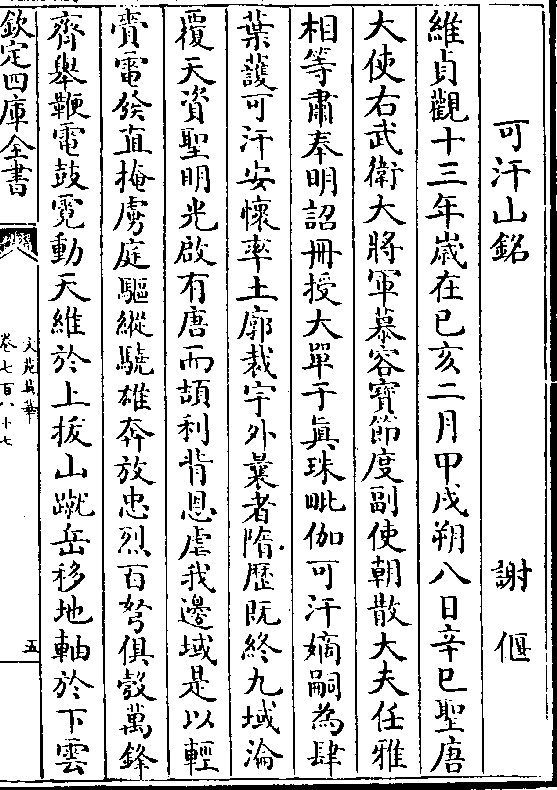 可汗山銘 謝偃
維貞觀十三年歳在己亥二月甲戌朔八日辛巳聖唐
大使右武衛大將軍慕容寳節度副使朝散大夫任雅
相等肅奉明詔冊授大單于真珠毗伽可汗嫡嗣為肆
葉䕶可汗安懷率土廓裁宇外曩者隋歴既終九域淪
覆天資聖明光啟有唐而頡利背恩虐我邊域是以輕
賫雷發直掩虜庭驅縱驍雄奔放忠烈百弩俱彀萬鋒
齊舉鞭電鼓霓動天維於上拔山蹴岳移地軸於下雲
欽定四庫全書
文苑英華
卷七百八十七
五